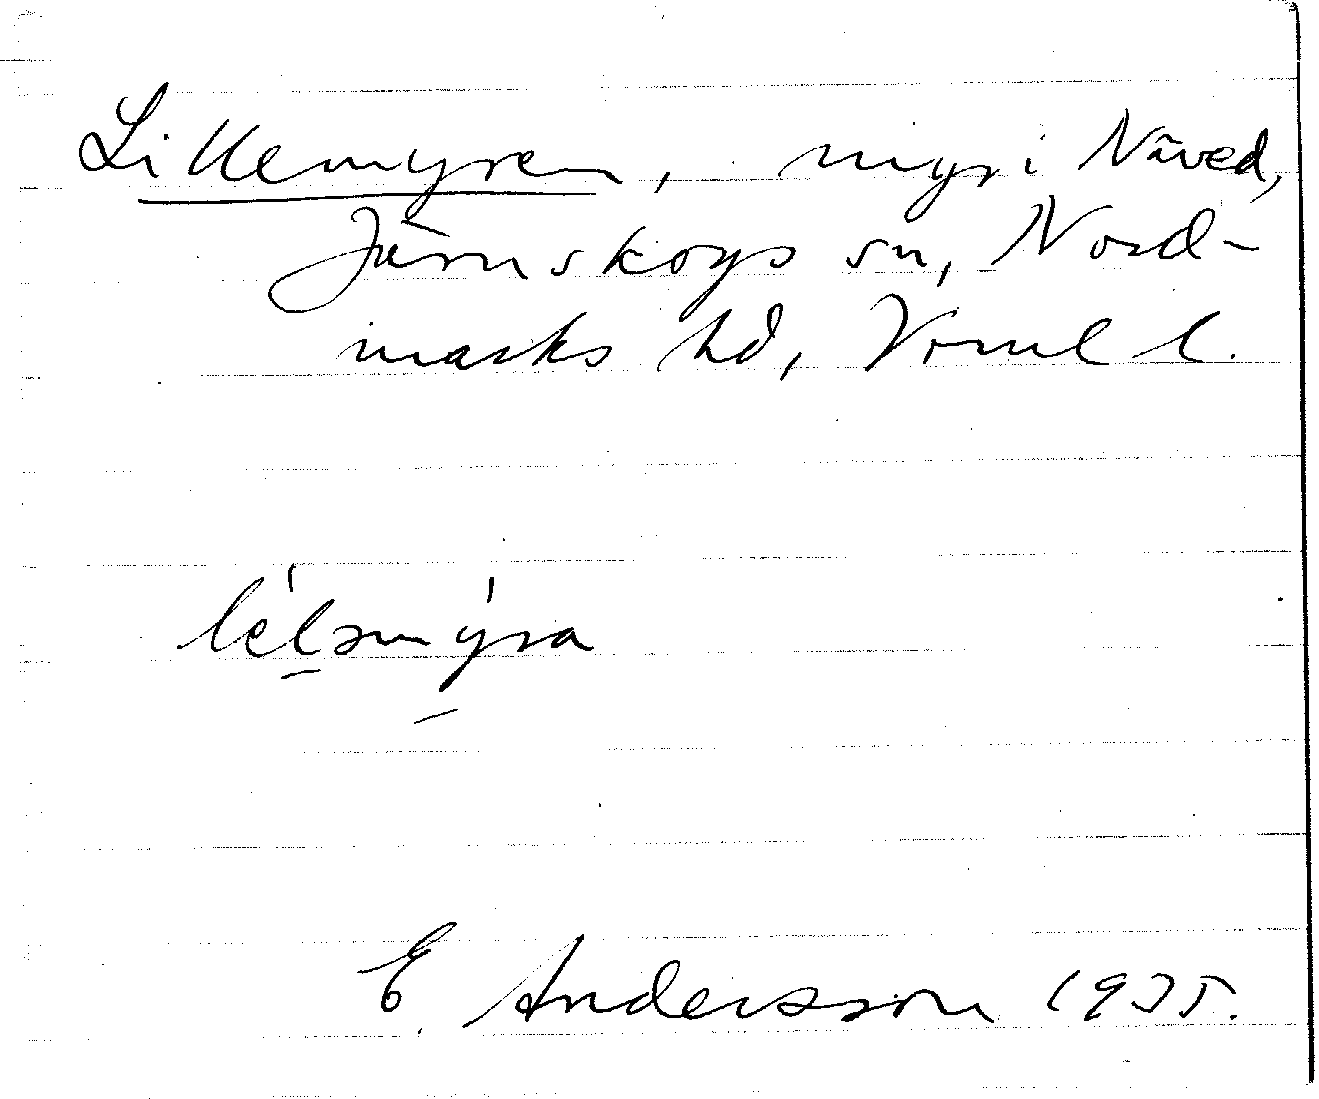 Lillemyren, myr i Näved,
Järnskogs sn, Nord-
marks hd, Vrml l.
léləmýra
E. Andersson 1935.